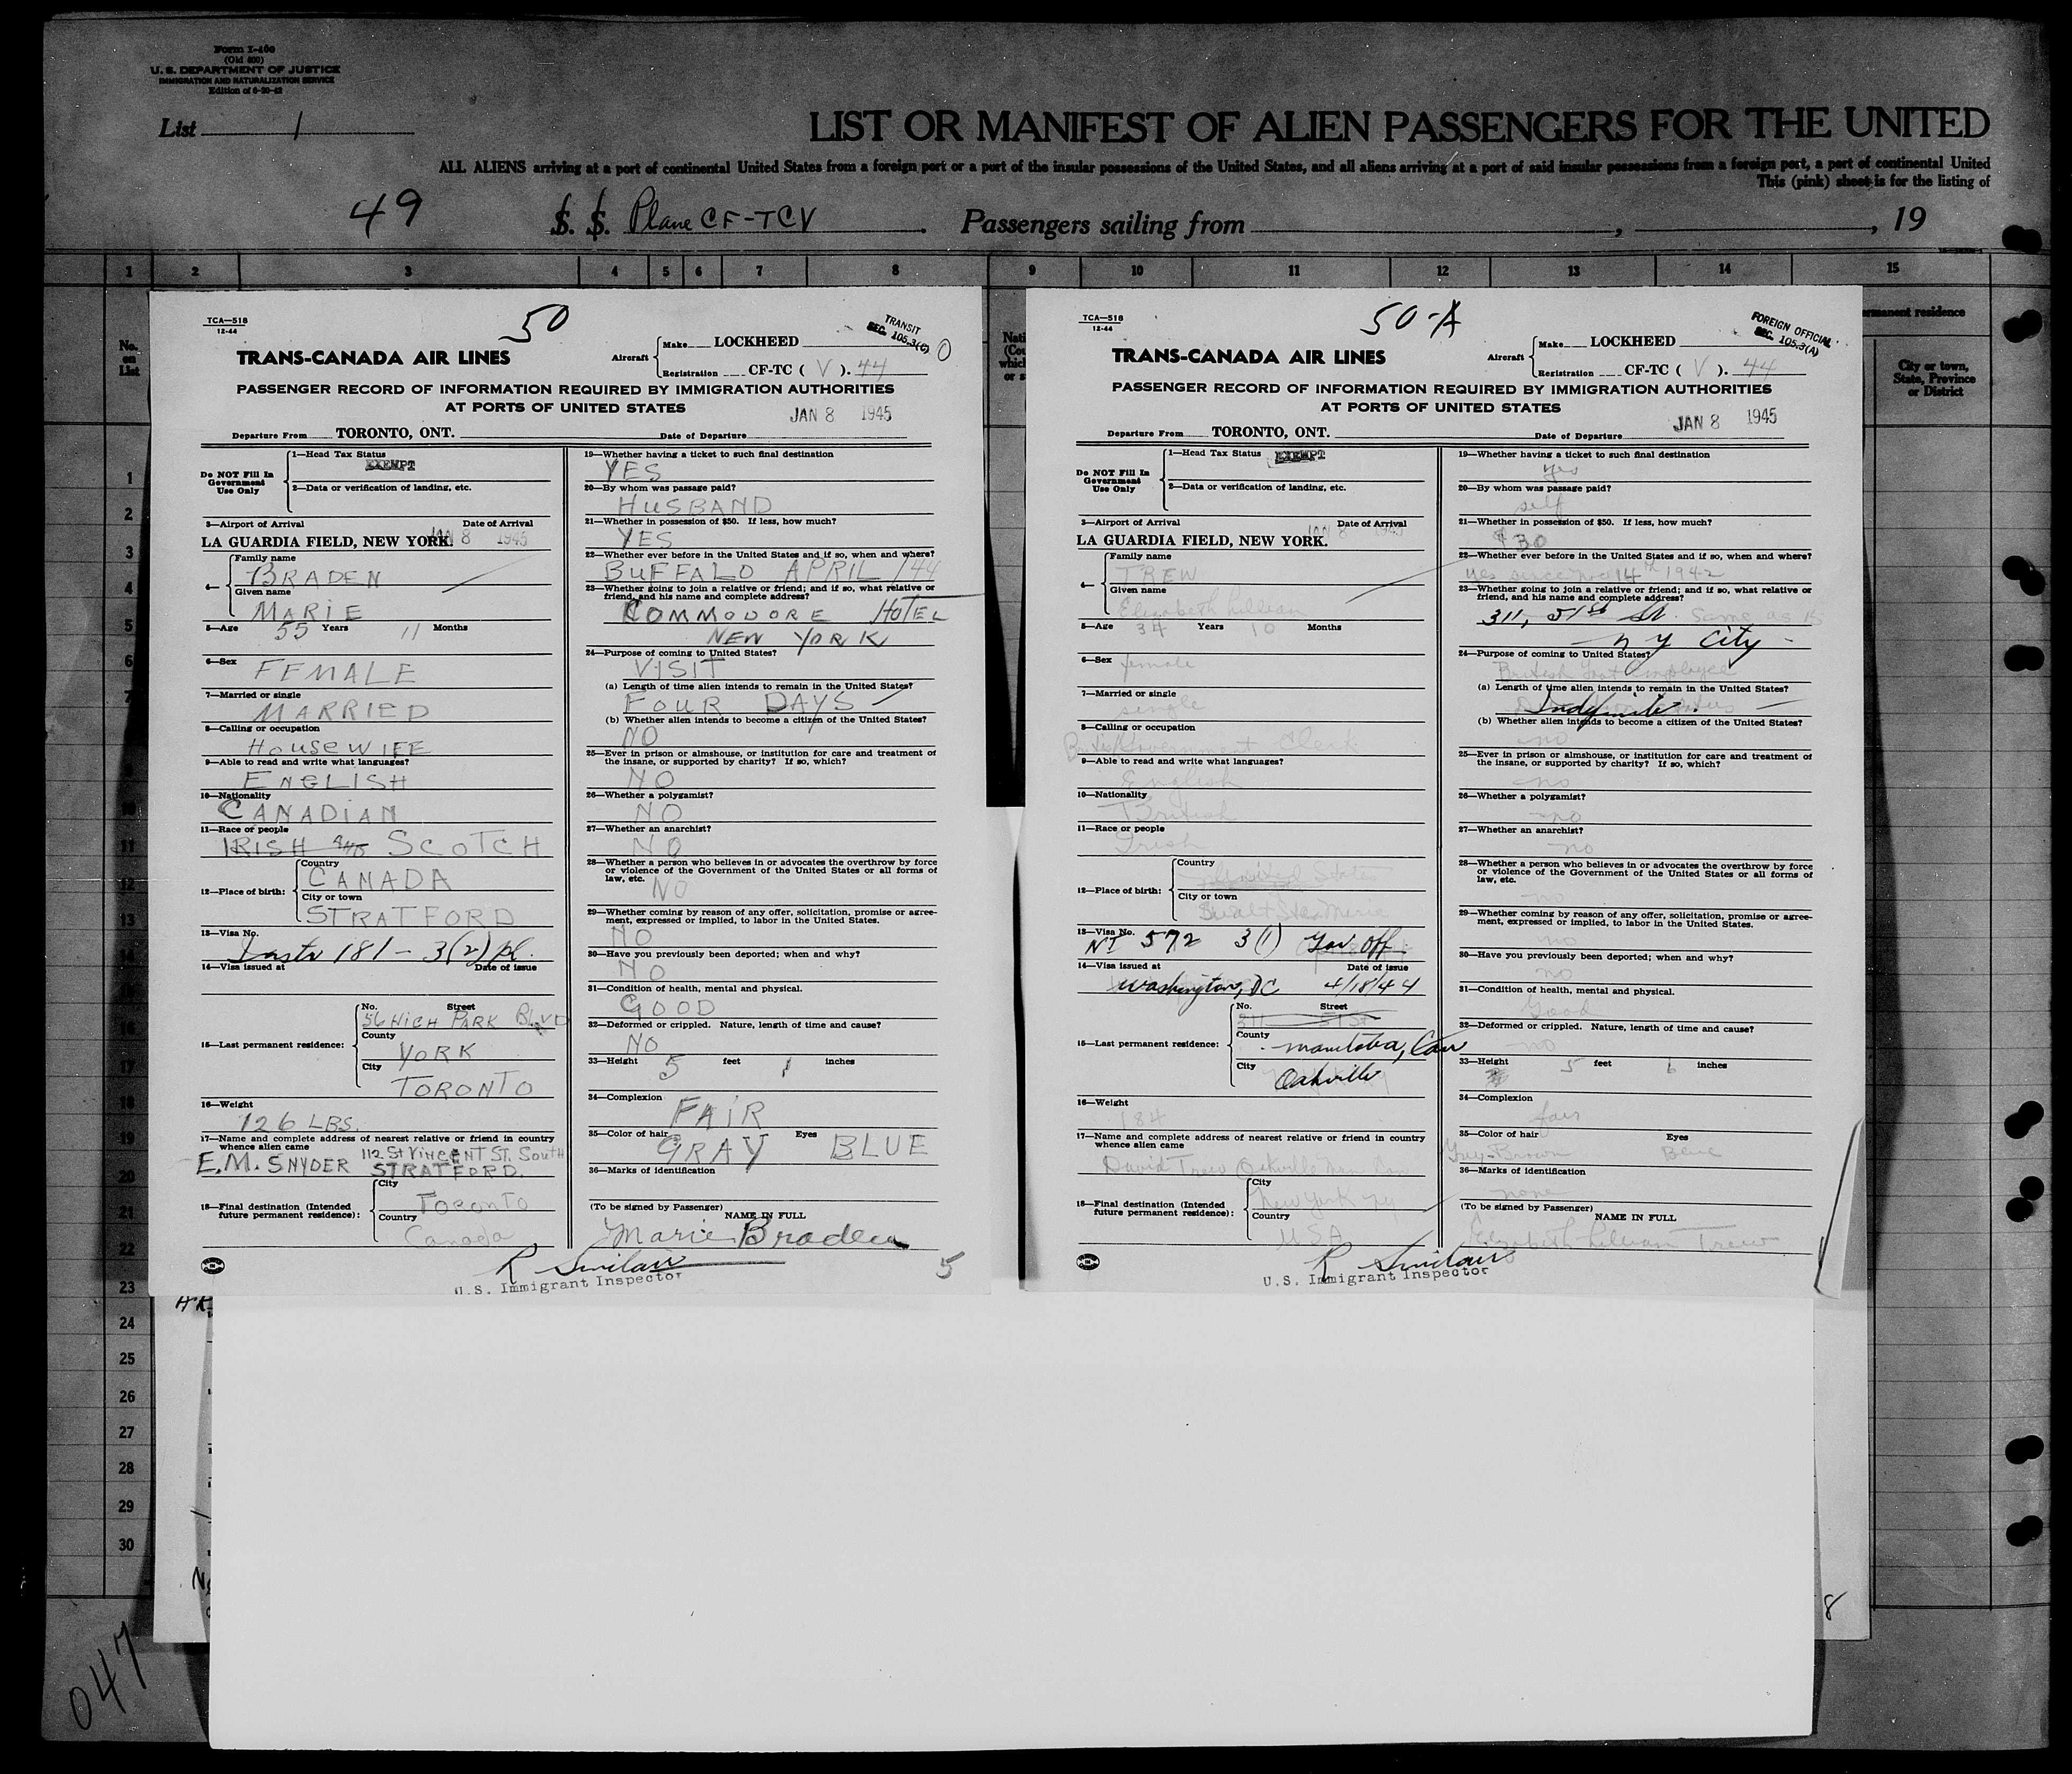 Form I-460
(Old 500)
U. S. DEPARTMENT OF JUSTICE
IMMIGRATION AND NATURALIZATION SERVICE
Edition of 6-20-42
List 1
LIST OR MANIFEST OF ALIEN PASSENGERS FOR THE UNITED
ALL ALIENS arriving at a port of continental United States from a foreign port or a port of the insular possessions of the United States, and all aliens arriving at a port of said insular possessions from a foreign port, a port of continental United
This (pink) sheet is for the listing of
49 S. S. Plane CF-TCV. Passengers sailing from , , 19
1 2 3 4 5 6 7 8 9 10 11 12 13 14 15
No. on List
permanent residence
City or town, State, Province or District
TCA—518
12-44
50
TRANSIT
SEC. 105.3(C)
TRANS-CANADA AIR LINES
Aircraft
Make LOCKHEED
Registration CF-TC ( V ). 44
PASSENGER RECORD OF INFORMATION REQUIRED BY IMMIGRATION AUTHORITIES
AT PORTS OF UNITED STATES
JAN 8 1945
Departure From TORONTO, ONT. Date of Departure
Do NOT Fill In Government Use Only
1—Head Tax Status
EXEMPT
2—Data or verification of landing, etc.
3—Airport of Arrival Date of Arrival
LA GUARDIA FIELD, NEW YORK. JAN 8 1945
4— Family name
BRADEN
Given name
MARIE
5—Age 55 Years 11 Months
6—Sex
FEMALE
7—Married or single
MARRIED
8—Calling or occupation
HOUSEWIFE
9—Able to read and write what languages?
ENGLISH
10—Nationality
CANADIAN
11—Race or people
IRISH AND SCOTCH
12—Place of birth:
Country
CANADA
City or town
STRATFORD
13—Visa No.
181 - 3(2) pl.
14—Visa issued at Date of issue
15—Last permanent residence:
No. Street
56 HIGH PARK BLVD
County
YORK
City
TORONTO
16—Weight
126 LBS.
17—Name and complete address of nearest relative or friend in country whence alien came
E.M. SNYDER 112 St VINCENT ST. South
STRATFORD.
18—Final destination (Intended future permanent residence):
City
Toronto
Country
Canada
19—Whether having a ticket to such final destination
YES
20—By whom was passage paid?
HUSBAND
21—Whether in possession of $50. If less, how much?
YES
22—Whether ever before in the United States and if so, when and where?
BUFFALO APRIL /44
23—Whether going to join a relative or friend; and if so, what relative or friend, and his name and complete address?
COMMODORE HOTEL
NEW YORK
24—Purpose of coming to United States?
VISIT
(a) Length of time alien intends to remain in the United States?
FOUR DAYS
(b) Whether alien intends to become a citizen of the United States?
NO
25—Ever in prison or almshouse, or institution for care and treatment of the insane, or supported by charity? If so, which?
NO
26—Whether a polygamist?
NO
27—Whether an anarchist?
NO
28—Whether a person who believes in or advocates the overthrow by force or violence of the Government of the United States or all forms of law, etc.
NO
29—Whether coming by reason of any offer, solicitation, promise or agreement, expressed or implied, to labor in the United States.
NO
30—Have you previously been deported; when and why?
NO
31—Condition of health, mental and physical.
GOOD
32—Deformed or crippled. Nature, length of time and cause?
NO
33—Height 5 feet 1 inches
34—Complexion
FAIR
35—Color of hair Eyes
GRAY BLUE
36—Marks of identification
(To be signed by Passenger)
NAME IN FULL
Marie Braden
R Sinclair
U.S. Immigrant Inspector
5
TCA—518
12-44
50-A
FOREIGN OFFICIAL
SEC. 105.3(A)
TRANS-CANADA AIR LINES
Aircraft
Make LOCKHEED
Registration CF-TC ( V ). 44
PASSENGER RECORD OF INFORMATION REQUIRED BY IMMIGRATION AUTHORITIES
AT PORTS OF UNITED STATES
JAN 8 1945
Departure From TORONTO, ONT. Date of Departure
Do NOT Fill In Government Use Only
1—Head Tax Status EXEMPT
2—Data or verification of landing, etc.
3—Airport of Arrival Date of Arrival
LA GUARDIA FIELD, NEW YORK. JAN 8 1945
4— Family name
TREW
Given name
Elizabeth Lillian
5—Age 34 Years 10 Months
6—Sex
female
7—Married or single
single
8—Calling or occupation
British Government Clerk
9—Able to read and write what languages?
English
10—Nationality
British
11—Race or people
Irish
12—Place of birth:
Country
United States
City or town
Sault Ste Marie
13—Visa No.
NI 572 3(1) Gov Off.
14—Visa issued at Date of issue
Washington, DC 4/18/44
15—Last permanent residence:
No. Street
311 51st
County
Manitoba, Can
City
Oakville
16—Weight
184
17—Name and complete address of nearest relative or friend in country whence alien came
David Trew Oakville
18—Final destination (Intended future permanent residence):
City
New York NY
Country
USA
19—Whether having a ticket to such final destination
yes
20—By whom was passage paid?
self
21—Whether in possession of $50. If less, how much?
$30
22—Whether ever before in the United States and if so, when and where?
yes since 14th 1942
23—Whether going to join a relative or friend; and if so, what relative or friend, and his name and complete address?
311, 51st St. Same as 15
N Y City -
24—Purpose of coming to United States?
British Govt employee
(a) Length of time alien intends to remain in the United States?
Indefinite.
(b) Whether alien intends to become a citizen of the United States?
no
25—Ever in prison or almshouse, or institution for care and treatment of the insane, or supported by charity? If so, which?
no
26—Whether a polygamist?
no
27—Whether an anarchist?
no
28—Whether a person who believes in or advocates the overthrow by force or violence of the Government of the United States or all forms of law, etc.
no
29—Whether coming by reason of any offer, solicitation, promise or agreement, expressed or implied, to labor in the United States.
no
30—Have you previously been deported; when and why?
no
31—Condition of health, mental and physical.
Good
32—Deformed or crippled. Nature, length of time and cause?
no
33—Height 5 feet 6 inches
34—Complexion
fair
35—Color of hair Eyes
Grey-Brown Blue
36—Marks of identification
none
(To be signed by Passenger)
NAME IN FULL
Elizabeth Lillian Trew
R Sinclair
U.S. Immigrant Inspector
1
2
3
4
5
6
7
11
12
13
14
16
17
18
19
20
21
22
23
24
25
26
27
28
29
30
8
047